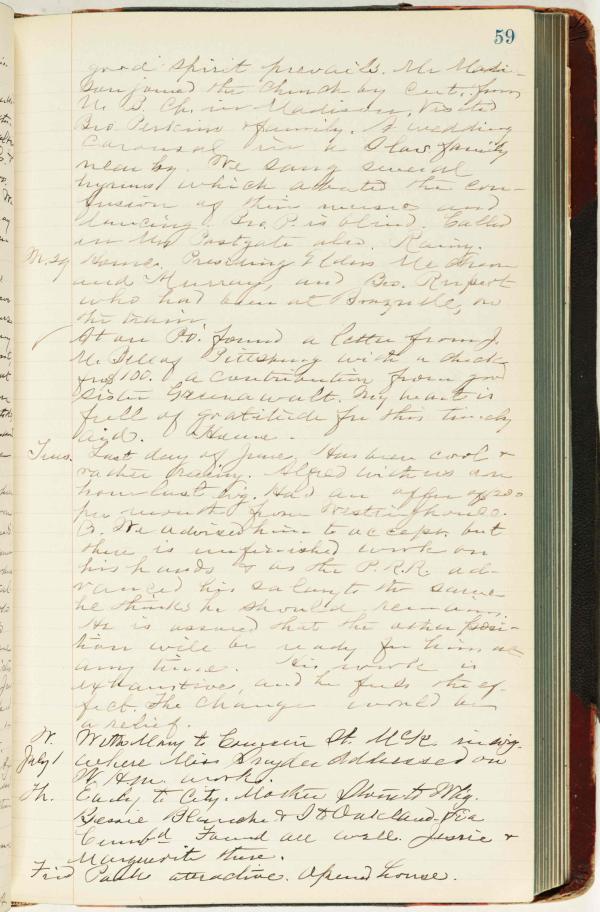 59
good spirit prevails. Mr. Madi-
son joined the Church by Cert. from
U. B. Ch. in Madison, Visited
Bro Perkins & family. A wedding
Carousal in a Slav family
near by. We sang several
hymns which abated the con-
fusion of their music and
dancing. Bro. P. is blind. Called
in Mr Postgate also. Rainy.
M. 29 Home. Presiding Elders
and Murray, and Bro. Rupert
who had been at, on
the train.
At our P.O. found a letter from J.
of Pittsburg with a check
for $100. a contribution from good
Sister Greenawalt. My heart is
full of gratitude for this timely
aid. Home.
Tues. Last day of June. Has been cool &
rather rainy. Alfred with us on
from last Evg. Had an offer of 200
per month from Westinghouse.
Co. We advised him to accept but
there is unfinished work on
his hands & as the P.R.R. ad-
vanced his salary to the same
he thinks he should remain.
He is assured that the other posi-
tion will be ready for him at
any time. His work is
exhaustive, and he feels the ef-
fect. The change would be
a relief.
W. With Mary to St. McK. in evg.
July 1 where Miss Snyder addressed on
W. H. M. work.
Th. Early to City. Mother
Bessie Blanche & I to Oakland via
Cumbd. Found all well. Jessie &
Marguerite there.
Frid Park attractive. Opened house.